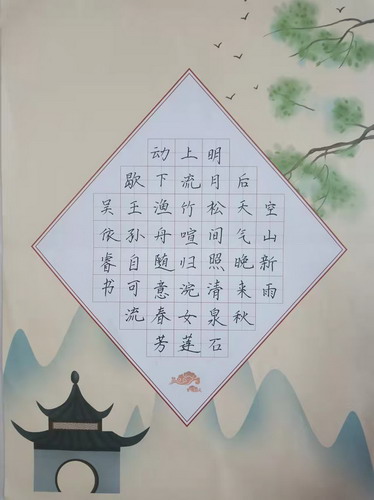 空山新雨
后天气晚来秋
明月松间照清泉石
上流竹喧归浣女莲
动下渔舟随意春芳
歇王孙自可流
吴依睿书